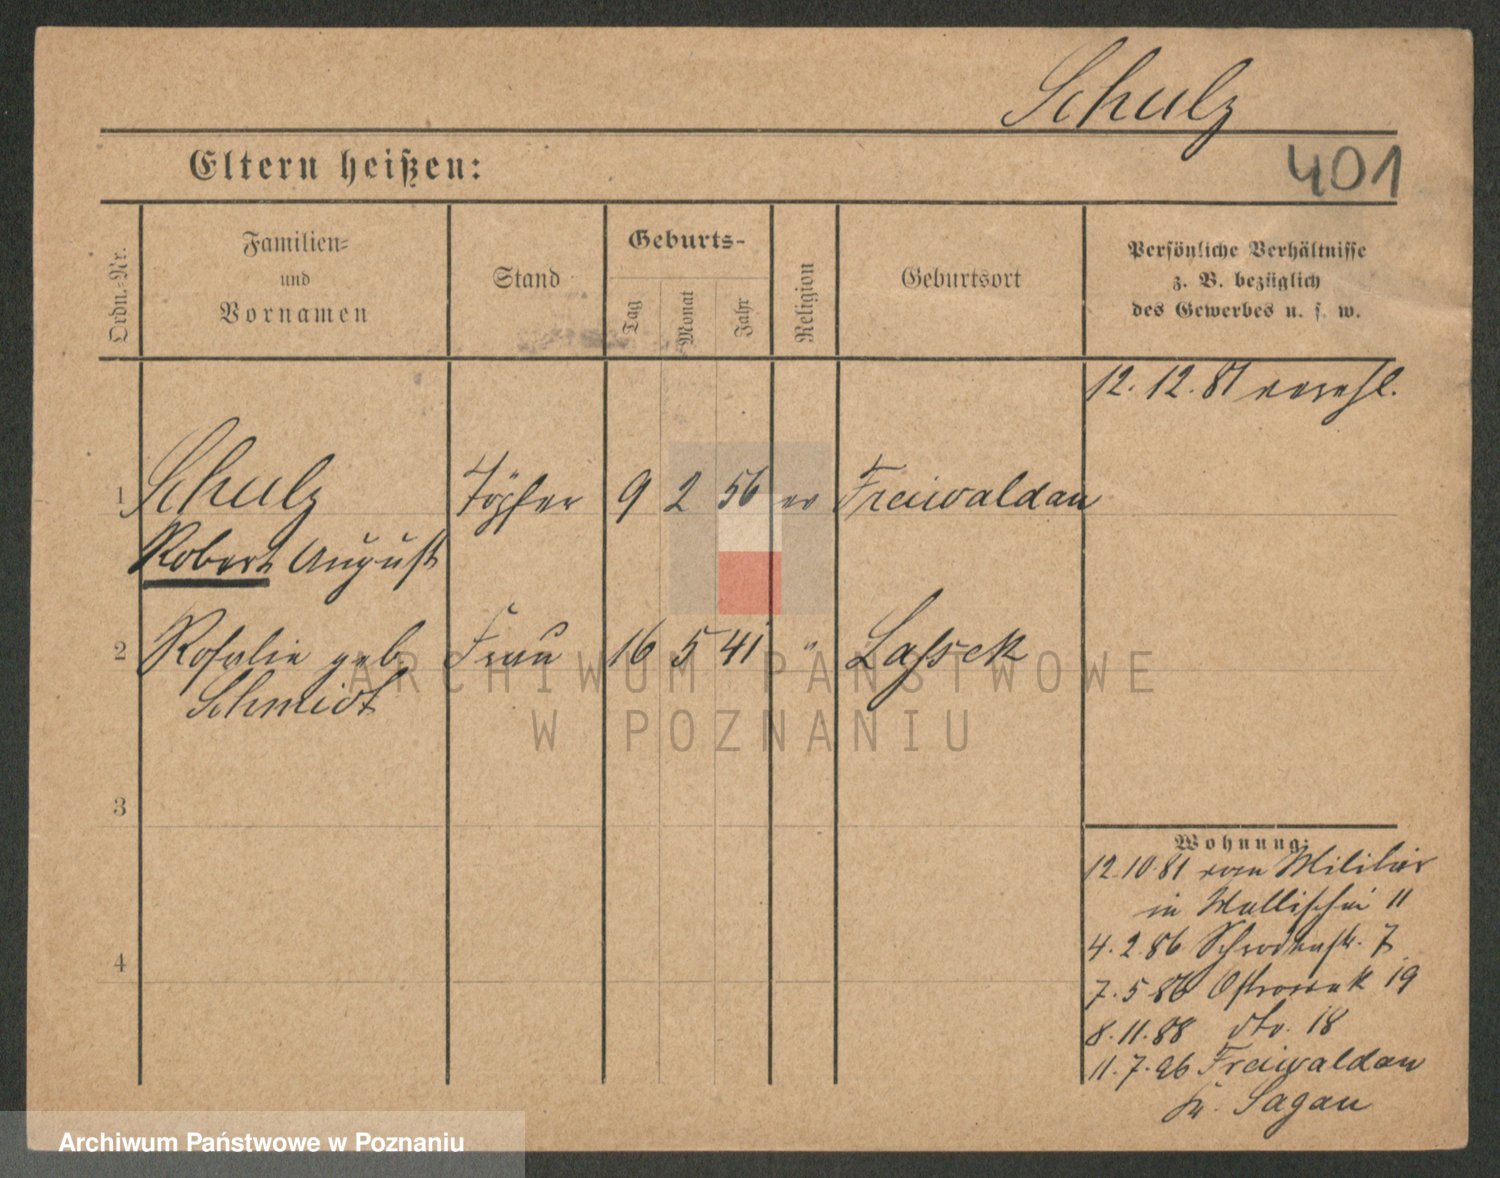 Schulz
Eltern heißen:
401
Ordn.-Nr.
Familien-
und
Vornamen
Stand
Geburts-
Tag
Monat
Jahr
Religion
Geburtsort
Persönliche Verhältnisse
z. B. bezüglich
des Gewerbes u. s. w.
12. 12. 81 verehl.
1 Schulz Töpfer 9 2 56 ev Freiwaldau
Robert August
2 Rosalie geb. Frau 16 5 41 " Lassek
Schmidt
ARCHIWUM PAŃSTWOWE
W POZNANIU
3
4
Wohnung:
12.10.81 vom Militär
in Wallischei 11
4.2.86 Schrodkastr. 7
7.5 86 Ostrowek 19
8.11.88 dto. 18
11.7.96 Freiwaldau
Kr. Sagan
Archiwum Państwowe w Poznaniu